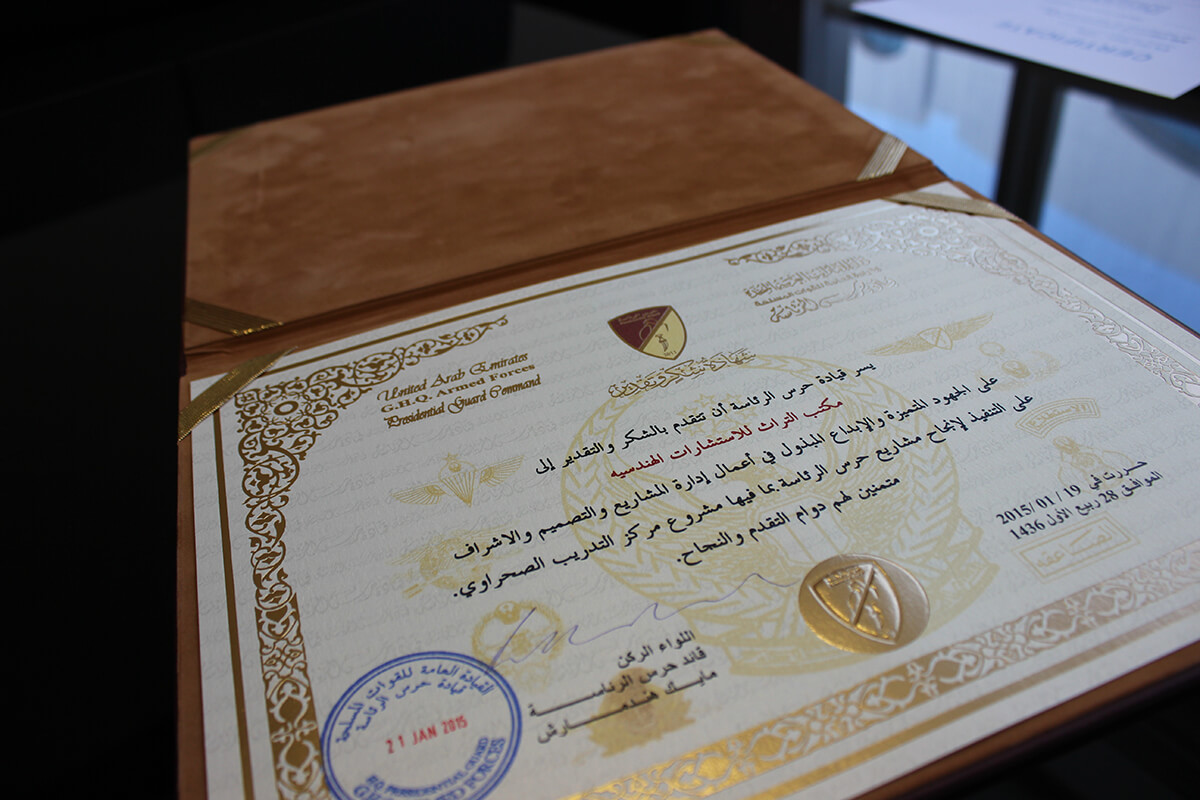 CERTIFICATE
United Arab Emirates
G.H.Q. Armed Forces
Presidential Guard Command
دولة الإمارات العربية المتحدة
القيادة العامة للقوات المسلحة
قيادة حرس الرئاسة
شهادة شكر وتقدير
يسر قيادة حرس الرئاسة أن تتقدم بالشكر والتقدير إلى
مكتب التراث للاستشارات الهندسيه
على الجهود المتميزة والإبداع المبذول في أعمال إدارة المشاريع والتصميم والاشراف
على التنفيذ لإنجاح مشاريع حرس الرئاسة بما فيها مشروع مركز التدريب الصحراوي.
متمنين لهم دوام التقدم والنجاح.
حررت في 19 / 01 / 2015
الموافق 28 ربيع الأول 1436
اللواء الركن
قائد حرس الرئاســـة
مايك هندمـــــارش
القيادة العامة للقوات المسلحة
قيادة حرس الرئاسة
21 JAN 2015
HQ PRESIDENTIAL GUARD
FORCES